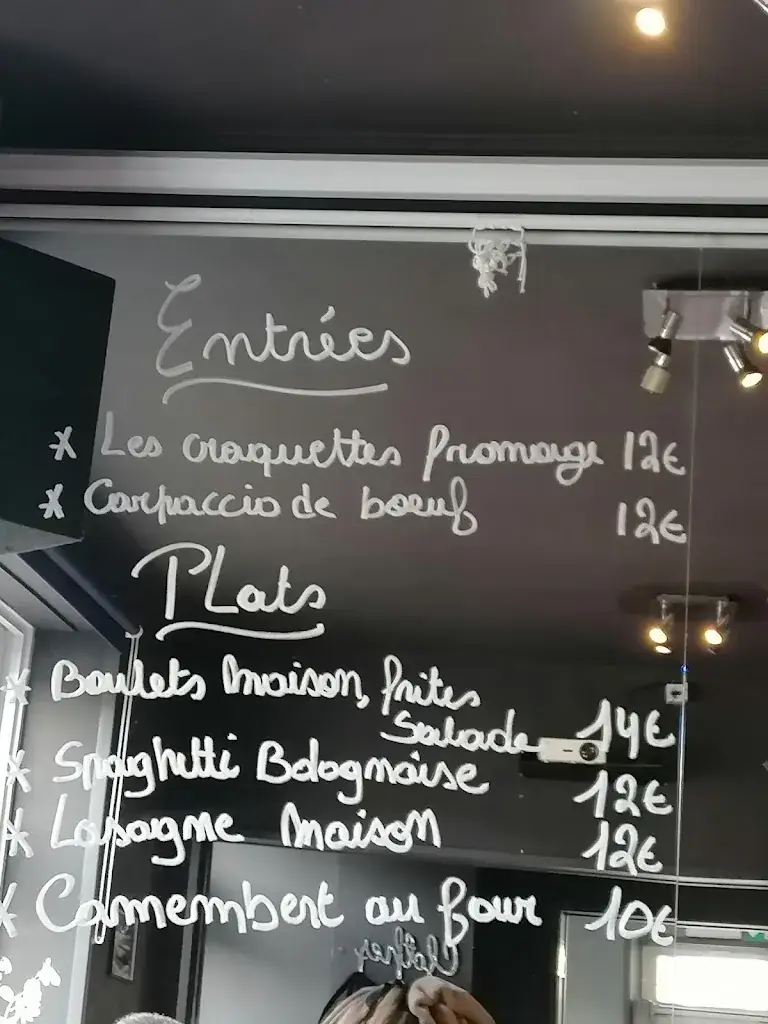 Entrées
* Les craquettes fromage 12€
* Carpaccio de boeuf 12€
PLats
* Boulets maison, frites
Salade 14€
* Spaghetti Bolognaise 12€
* Lasagne Maison 12€
* Camembert au four 10€